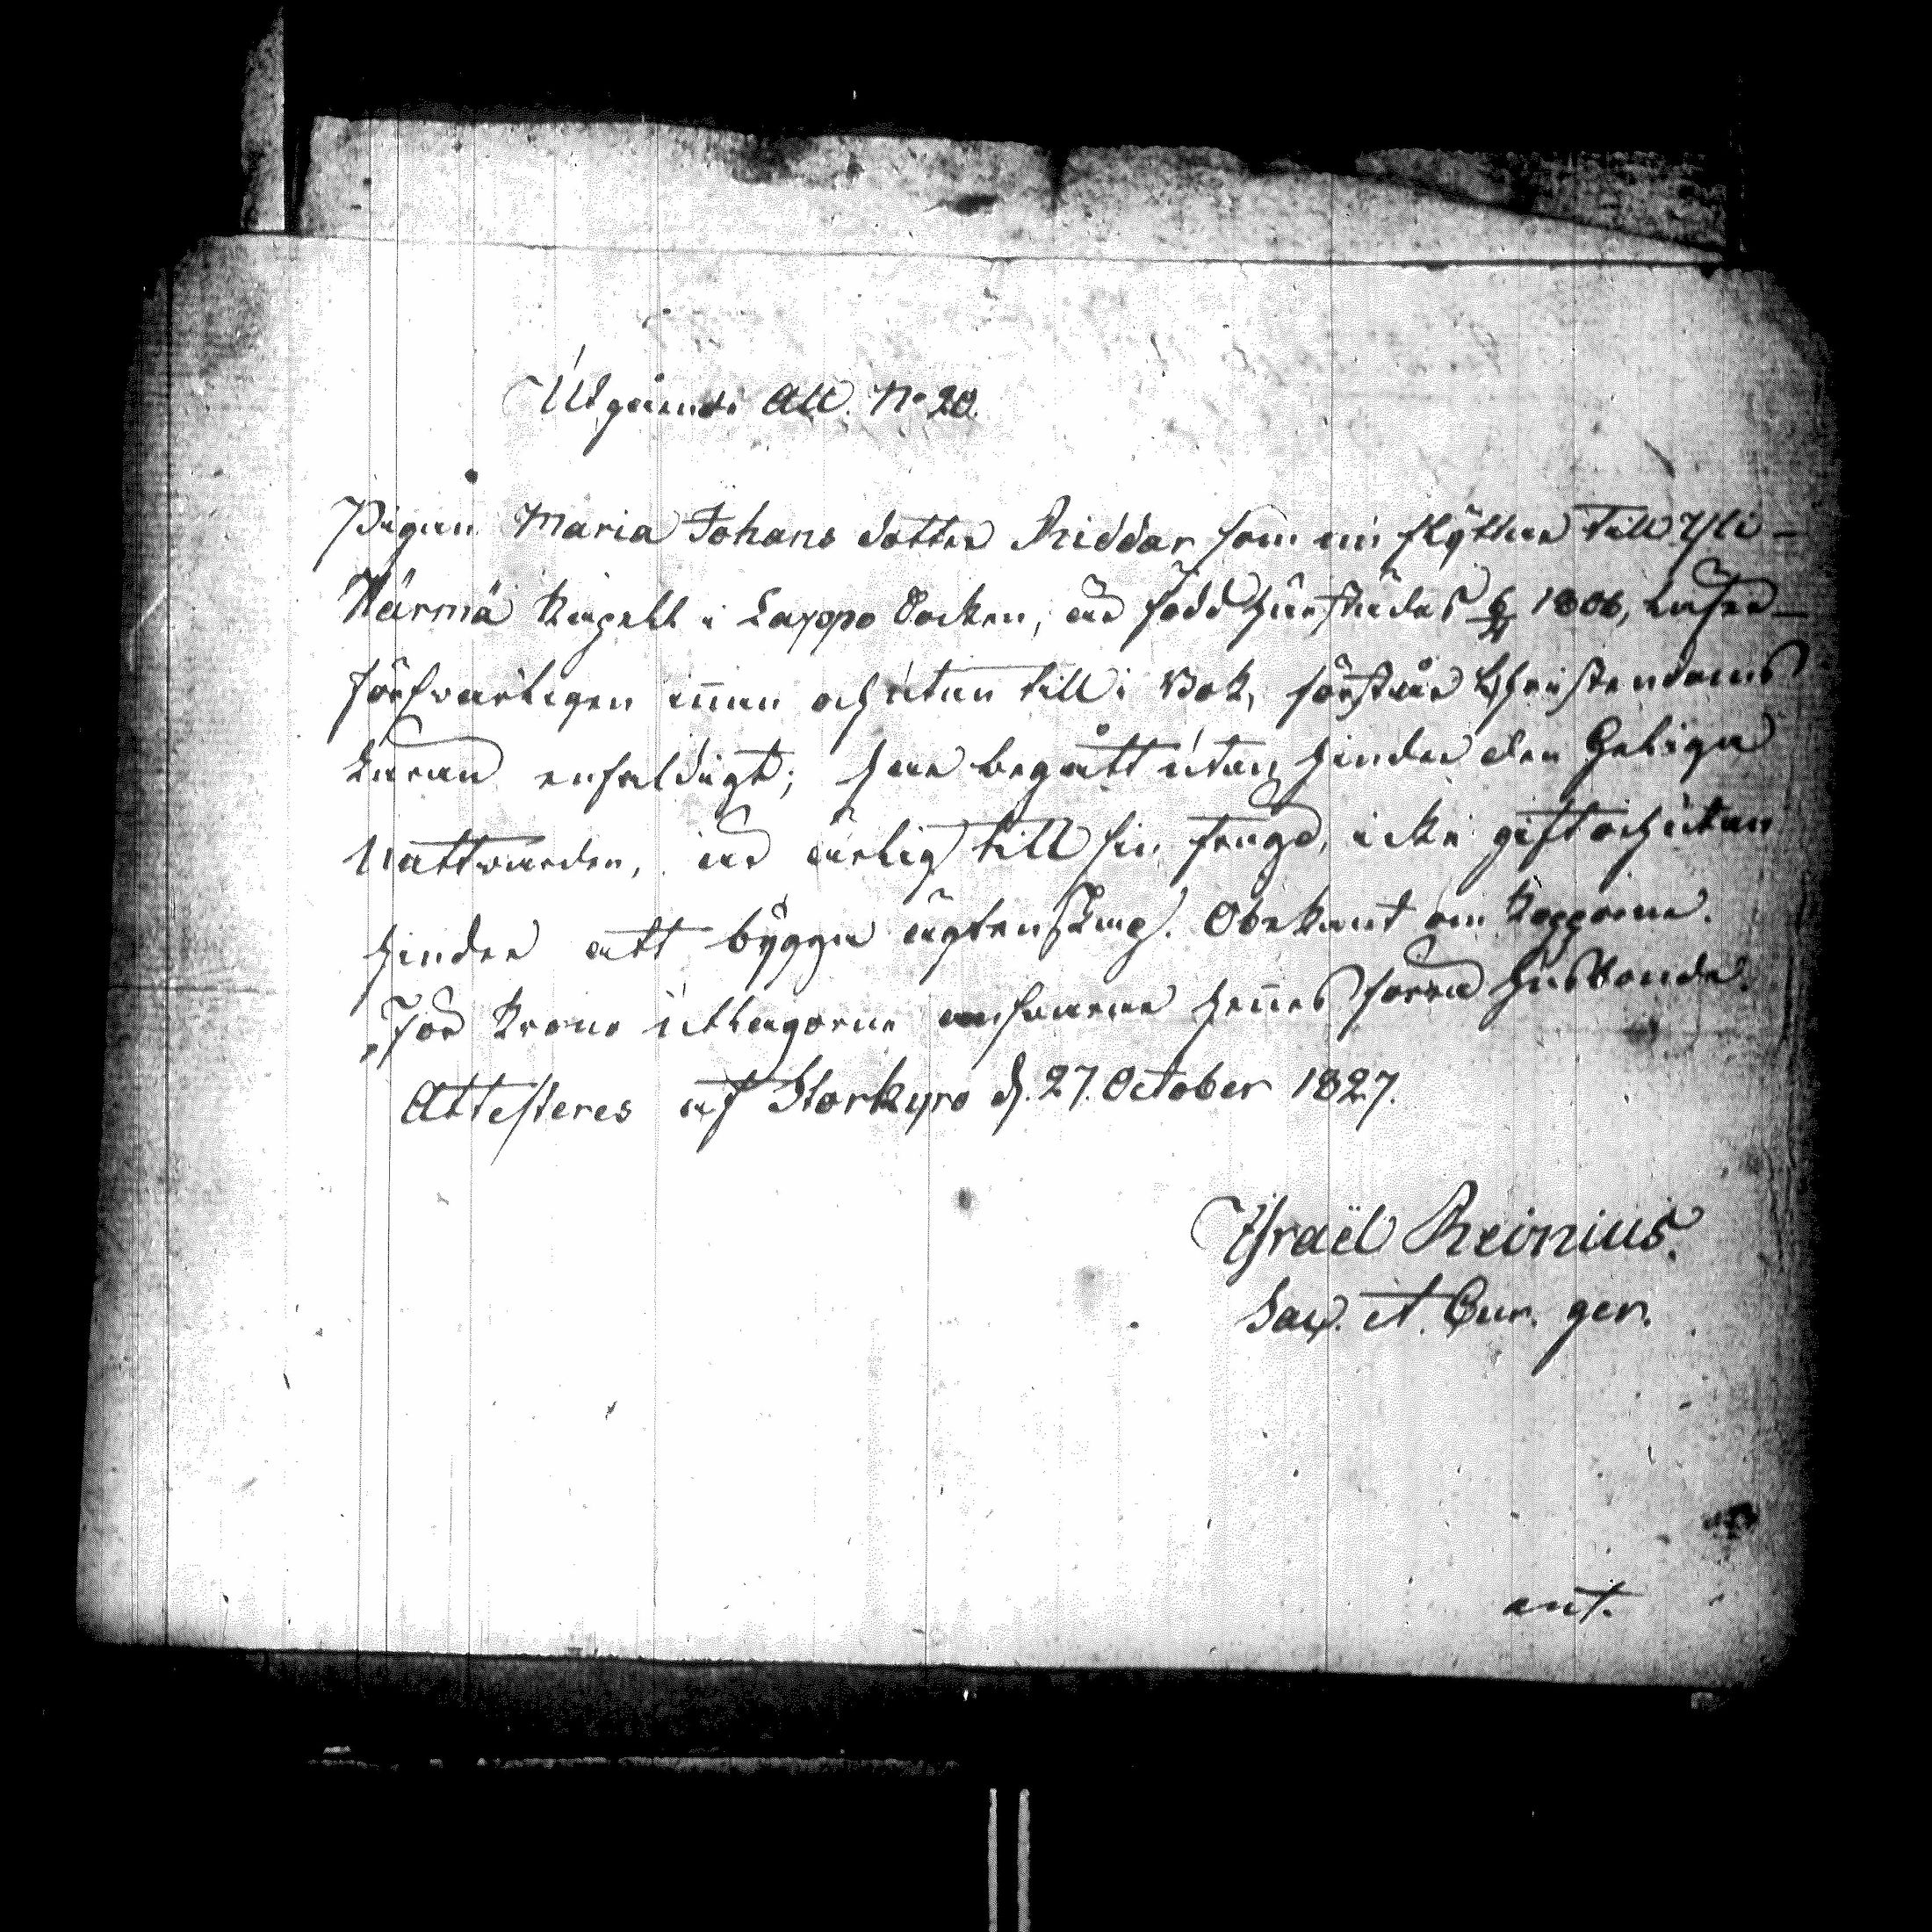 Utgående Att. No 20.
Pigan Maria Johans dotter Riddar som nu flyttar till Yli-
Härmä Kapell i Lappo Socken, är född härstädes 1806, läser
försvarligen innan och utan till i Bok, förstår Christendoms
Läran enfaldigt; har begått utan hinder den Heliga
Nattwarden, är ärlig till sin frägd, icke gift och utan
hinder att bygga ägtenskap. Obekant om Kopporne.
För Krono utlagorne ansvarar hennes förra Husbonde.
Attesteres af Storkyro d. 27. October 1827.
Israël Reinius.
Sac. et. Cur. ger.
ant.